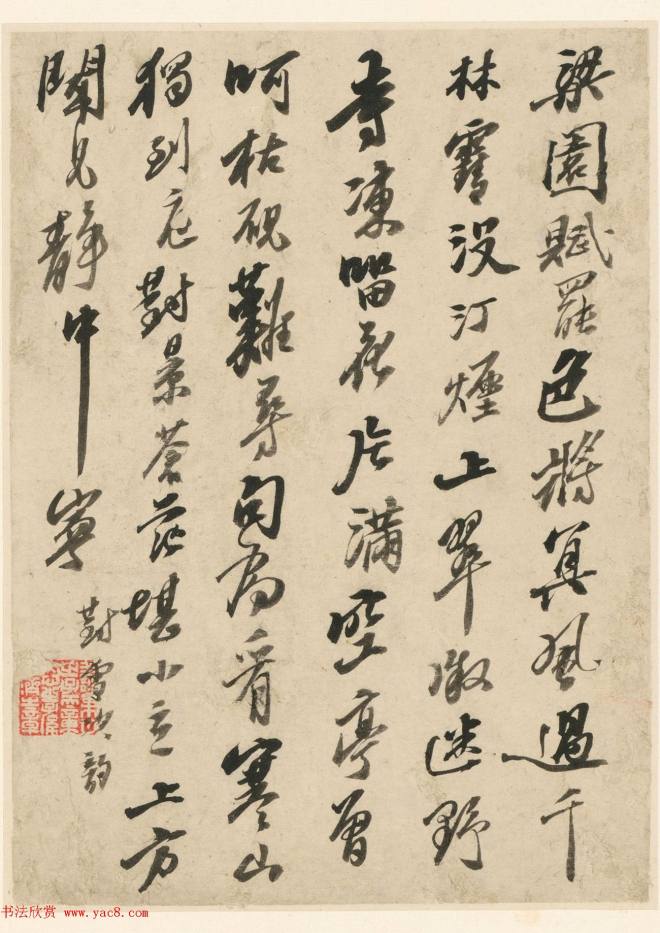 梁園賦罷色將冥風過千
林霽沒汀煙上翠微迷野
寺凍花片滿空亭曾
呵枯硯難尋句為看寒山
獨到對景蒼茫堪小立上方
聞見靜中寧
對雪次韵
书法欣赏 www.yac8.com